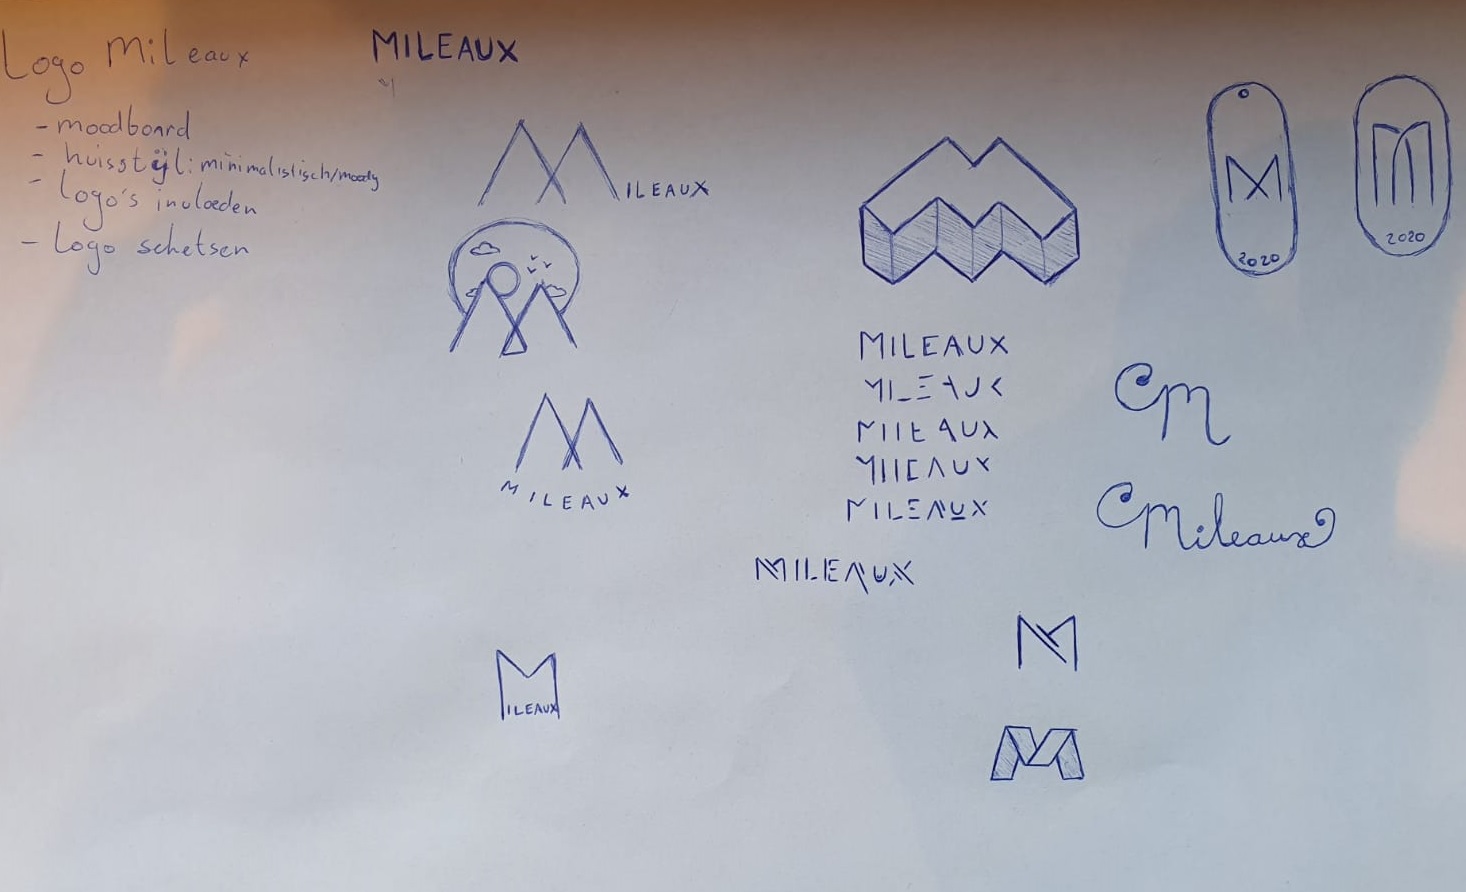 Logo Mileaux
- moodboard
- huisstijl: minimalistisch/moody
- logo's invloeden
- Logo schetsen
MILEAUX
MILEAUX
MILEAUX
MILEAUX
M
2020
M
2020
MILEAUX
MILEAUX
MILEAUX
MILEAUX
MILEAUX
MILEAUX
CM
CMileaux
M
M